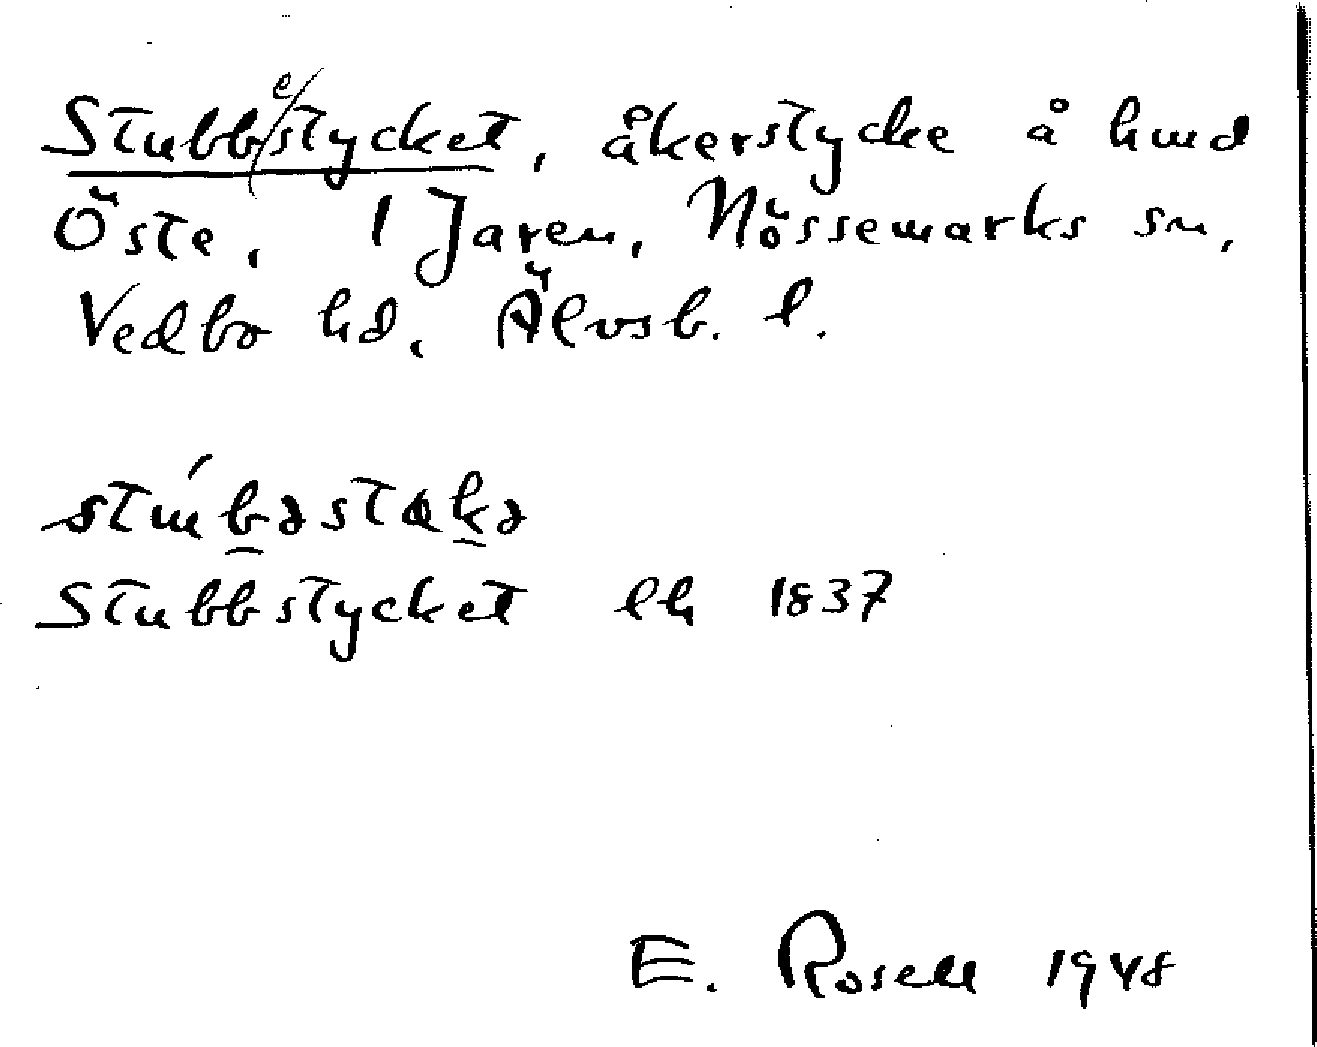 Stubbestycket, åkerstycke å hmd
Öste, 1 Jaren, Nössemarks sn,
Vedbo hd, Älvsb. l.
Stubbstycket lh 1837
E. Rosell 1948